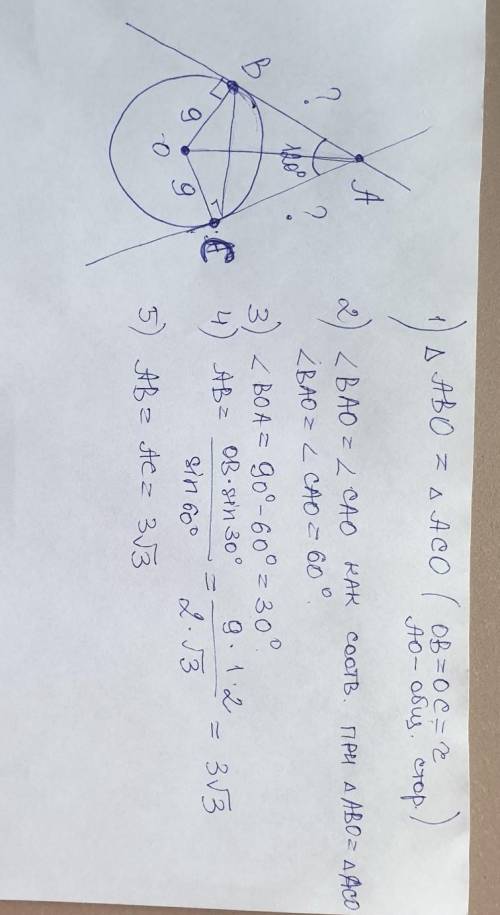 B
?
A
120°
?
9
O
9
C
1) △ ABO = △ ACO ( OB = OC = r
AO - общ. стор.)
2) ∠BAO = ∠CAO как соотв. при △ABO = △ACO
∠BAO = ∠CAO = 60°.
3) ∠BOA = 90° - 60° = 30°.
4) AB = OB·sin30° / sin60° = 9·1·2 / 2·√3 = 3√3
5) AB = AC = 3√3